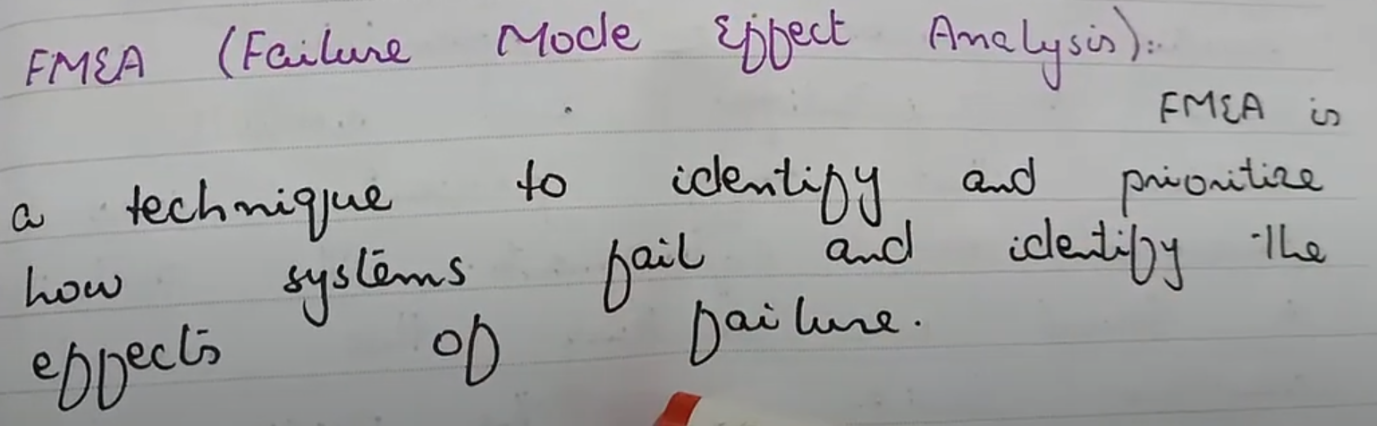 FMEA (Failure Mode Effect Analysis):
FMEA is
a technique to identify and prioritize
how systems fail and identify the
effects of failure.